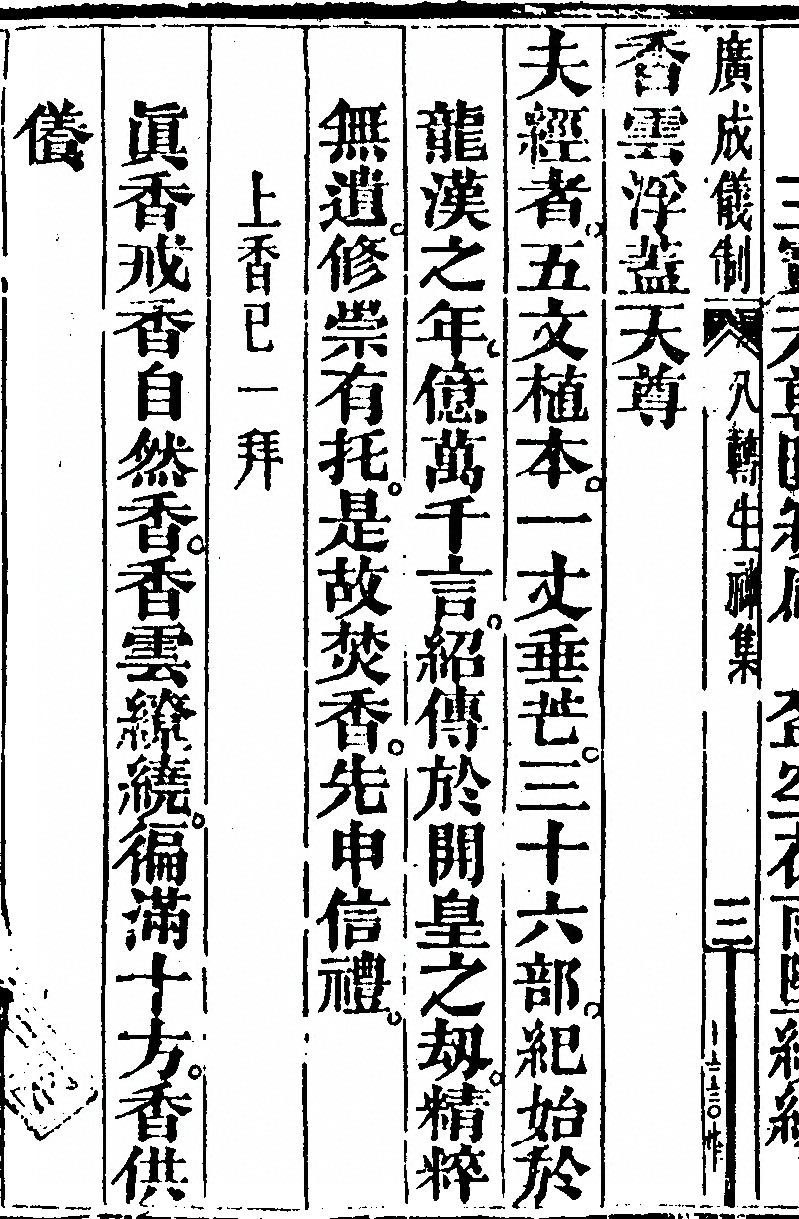 廣成儀制 八轉生神集 三
香雲浮蓋天尊
夫經者。五文植本。一丈垂芒。三十六部。紀始於
龍漢之年。億萬千言。紹傳於開皇之劫。精粹
無遺。修崇有托。是故焚香。先申信禮。
上香已一拜
眞香戒香自然香。香雲繚繞。徧滿十方。香供
養